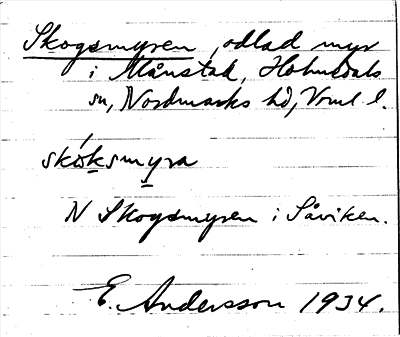 Skogsmyren, odlad myr
i Månstad, Holmedals
sn, Nordmarks hd, Vrml. l.
skȯ́ksmyra
N Skogsmyren i Såviken.
E. Andersson 1934.